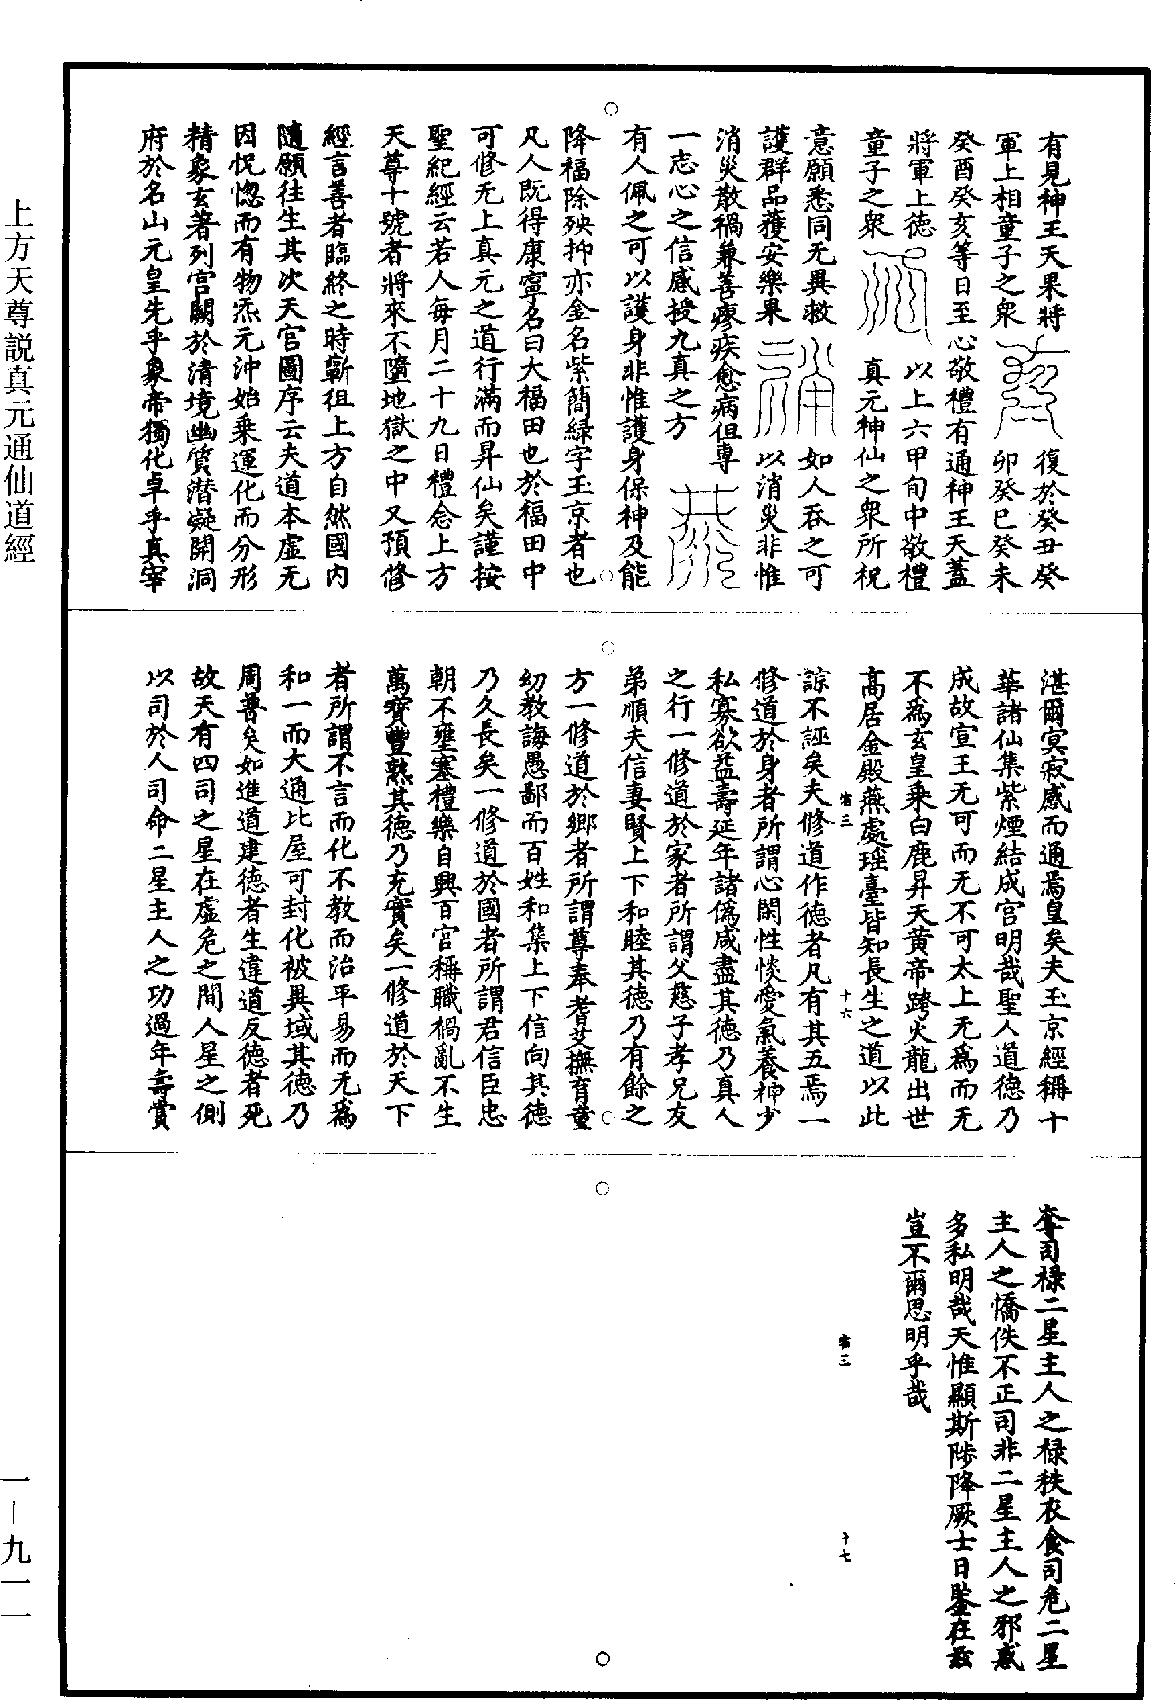 有見神王天果將
軍上相童子之衆
癸酉癸亥等日至心敬禮有通神王天蓋
將軍上德
童子之衆
復於癸丑癸
卯癸巳癸未
以上六甲旬中敬禮
真元神仙之衆所祝
意願悉同无異救
護群品獲安樂果
消災散禍兼善瘳疾愈病但專
一志心之信感授九真之方
有人佩之可以護身非惟護身保神及能
如人吞之可
以消災非惟
降福除殃抑亦金名紫簡緑字玉京者也
凡人既得康寧名曰大福田也於福田中
可修无上真元之道行滿而昇仙矣謹按
聖紀經云若人每月二十九日禮念上方
天尊十號者將來不墮地獄之中又預修
經言善者臨終之時斬徂上方自然國内
隨願往生其次天宫圖序云夫道本虛无
因怳惚而有物炁元沖始乘運化而分形
精象玄著列宫闕於清境幽質潜凝開洞
府於名山元皇先乎象帝獨化卓乎真宰
湛爾冥寂感而通焉皇矣夫玉京經稱十
華諸仙集紫煙結成宫明哉聖人道德乃
成故宣王无可而无不可太上无爲而无
不爲玄皇乘白鹿昇天黄帝跨火龍出世
高居金殿燕處瑶臺皆知長生之道以此
三
十六
諒不誣矣夫修道作德者凡有其五焉一
修道於身者所謂心閑性惔愛氣養神少
私寡欲益壽延年諸僞咸盡其德乃真人
之行一修道於家者所謂父慈子孝兄友
弟順夫信妻賢上下和睦其德乃有餘之
方一修道於鄉者所謂尊奉耆艾撫育童
幼教誨愚鄙而百姓和集上下信向其德
乃久長矣一修道於國者所謂君信臣忠
朝不壅塞禮樂自興百官稱職禍亂不生
萬寳豐熟其德乃充實矣一修道於天下
者所謂不言而化不教而治平易而无爲
和一而大通比屋可封化被異域其德乃
周普矣如進道建德者生違道反德者死
故天有四司之星在虛危之間人星之側
以司於人司命二星主人之功過年壽賞
奪司禄二星主人之禄秩衣食司危二星
主人之憍佚不正司非二星主人之邪惑
多私明哉天惟顯斯陟降厥士日鑒在兹
豈不爾思明乎哉
三
十七
上方天尊説真元通仙道經
一—九一一